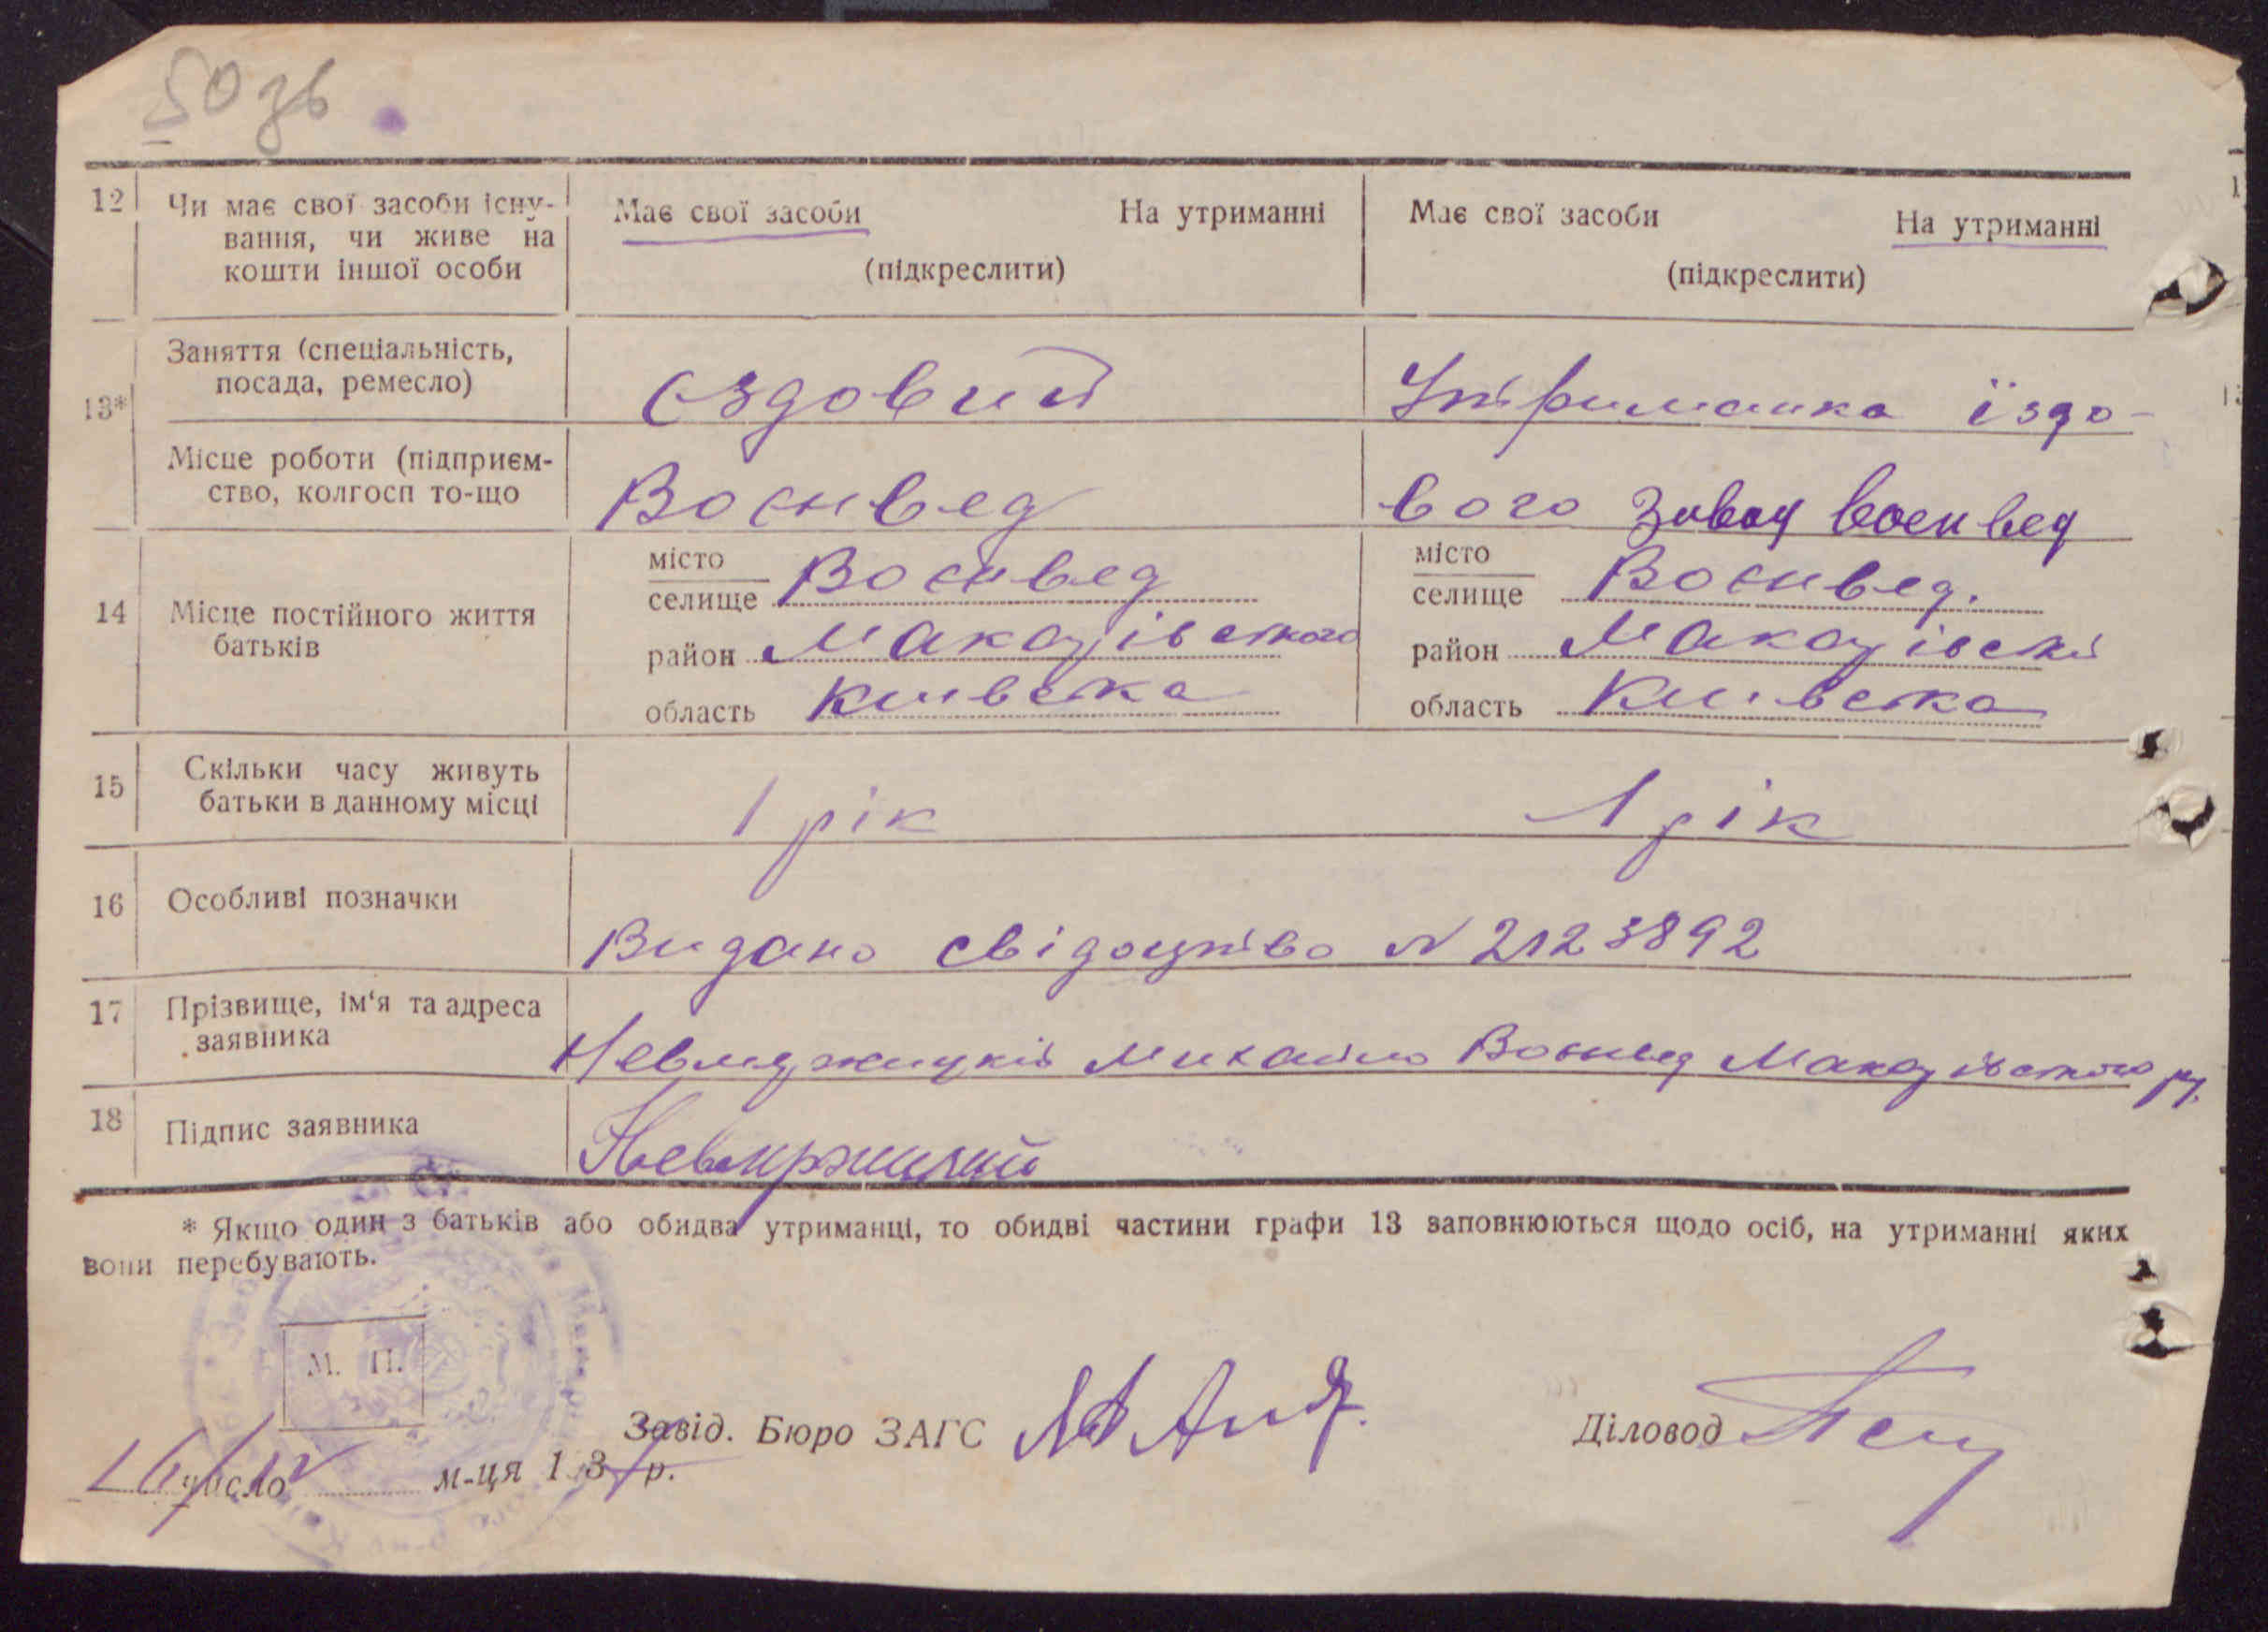 50 зв
12 Чи має свої засоби існу- Має свої засоби На утриманні Має свої засоби На утриманні
вання, чи живе на (підкреслити) (підкреслити)
кошти іншої особи
13* Заняття (спеціальність, єздовий Утриманка їздо-
посада, ремесло)
Місце роботи (підприєм- Воєнвед вого завод воєнвед
ство, колгосп то-що
14 Місце постійного життя
батьків
місто Воєнвед місто Воєнвед.
селище селище
район Макарівського район Макарівскі
область Київска область Київска
15 Скільки часу живуть 1 рік 1 рік
батьки в данному місці
16 Особливі позначки Видано свідоцтво N 2123892
17 Прізвище, ім'я та адреса Невмержицкій Михайло Воєнвед Макарівского р.
заявника
18 Підпис заявника Невмержицкий
* Якщо один з батьків або обидва утриманці, то обидві частини графи 13 заповнюються щодо осіб, на утриманні яких
вони перебувають.
М. П.
Завід. Бюро ЗАГС Діловод
16/IV число м-ця 193 р.